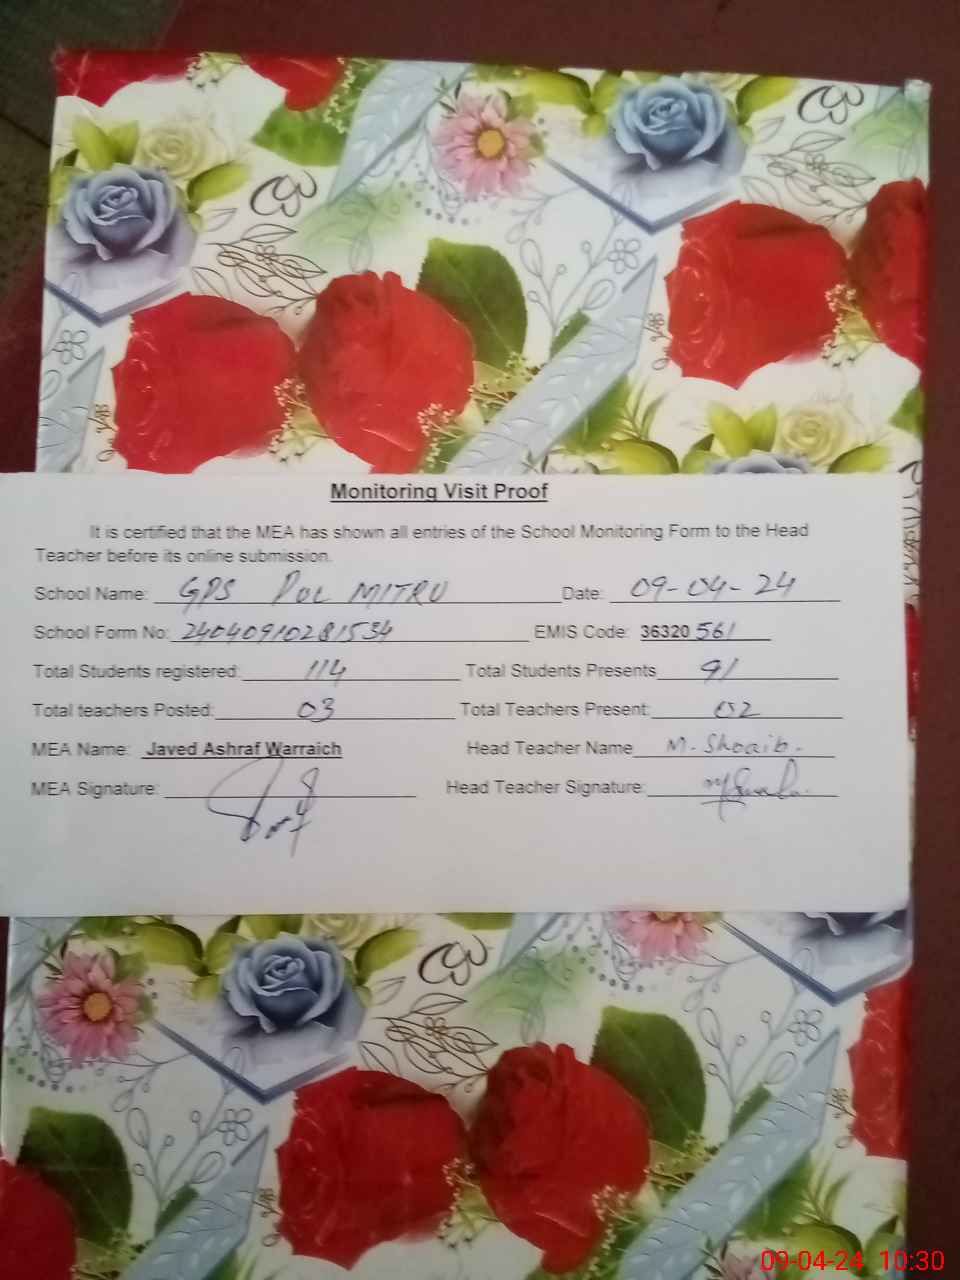 Monitoring Visit Proof
It is certified that the MEA has shown all entries of the School Monitoring Form to the Head
Teacher before its online submission.
School Name: GPS Pul MITRU Date: 09-04-24
School Form No: 24040910281534 EMIS Code: 36320 561
Total Students registered: 114 Total Students Presents 91
Total teachers Posted: 03 Total Teachers Present: 02
MEA Name: Javed Ashraf Warraich Head Teacher Name M. Shoaib.
MEA Signature: Head Teacher Signature:
09-04-24 10:30